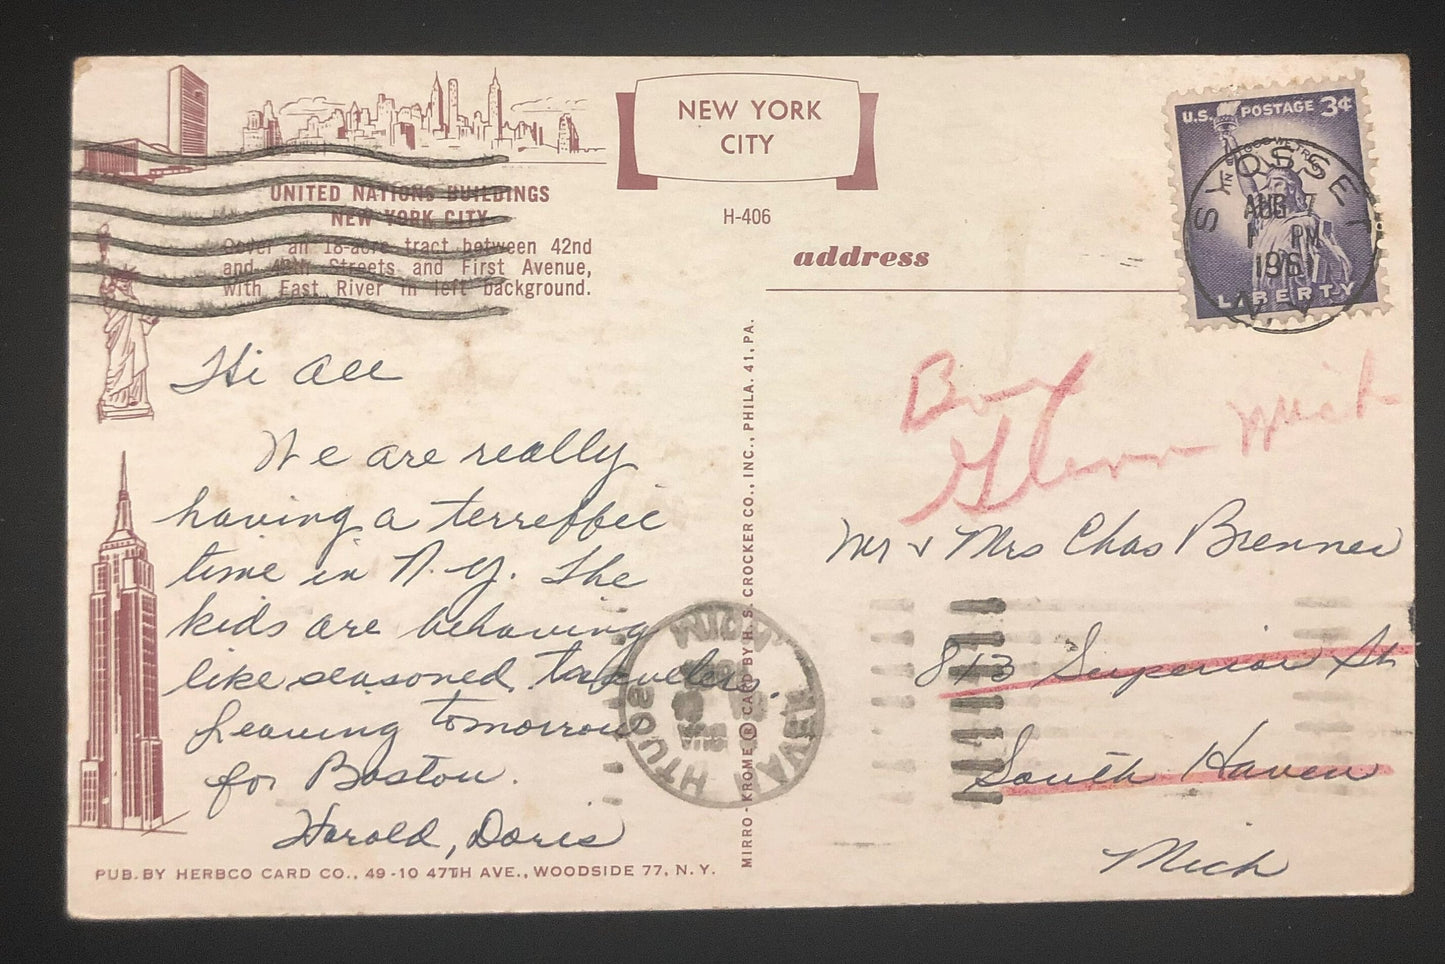 NEW YORK
CITY
U.S. POSTAGE 3¢
IN GOD WE TRUST
LIBERTY
SYOSSET
AUG 7
PM
196
N.Y.
UNITED NATIONS BUILDINGS
NEW YORK CITY
Cover an 18-acre tract between 42nd
and 48th Streets and First Avenue,
with East River in left background.
H-406
address
Hi all
We are really
having a terreffic
time in N.Y. The
kids are behaving
like seasoned travelers.
Leaving tomorrow
for Boston.
Harold, Doris
PUB. BY HERBCO CARD CO., 49-10 47TH AVE., WOODSIDE 77, N. Y.
MIRRO-KROME ® CARD BY H. S. CROCKER CO., INC., PHILA. 41, PA.
SOUTH HAVEN, MICH.
Box
Glenn Mich
Mr & Mrs Chas Brenner
813 Superior St
South Haven
Mich